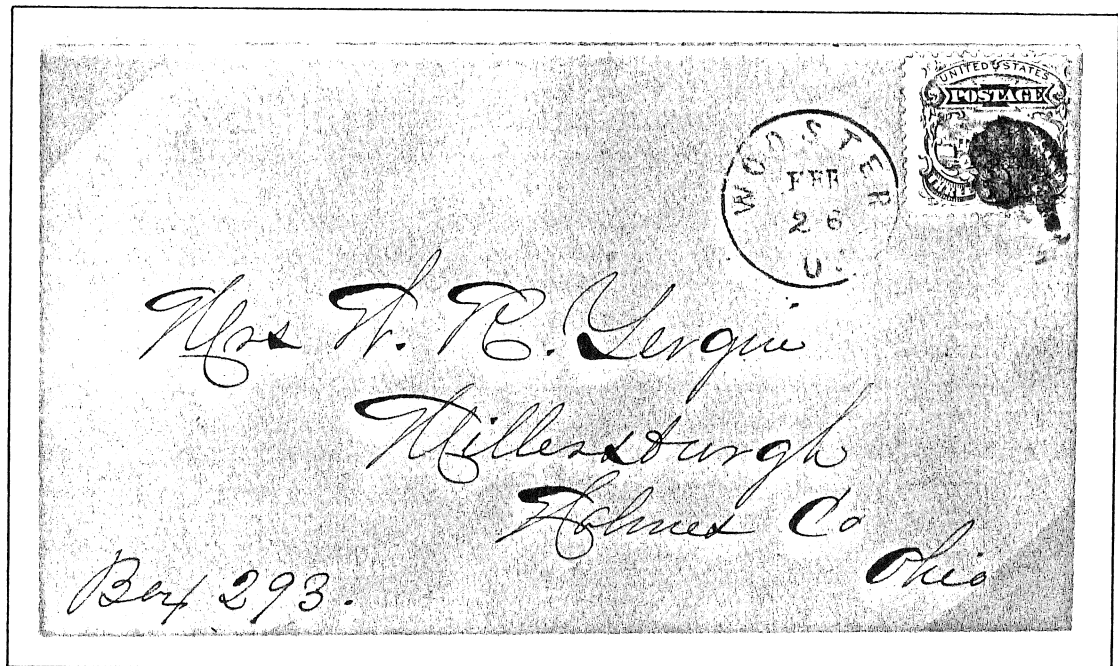 UNITED STATES
POSTAGE
WOOSTER
FEB
26
O.
Mrs W. R. Yergin
Millersburgh
Holmes Co
Ohio
Box 293.